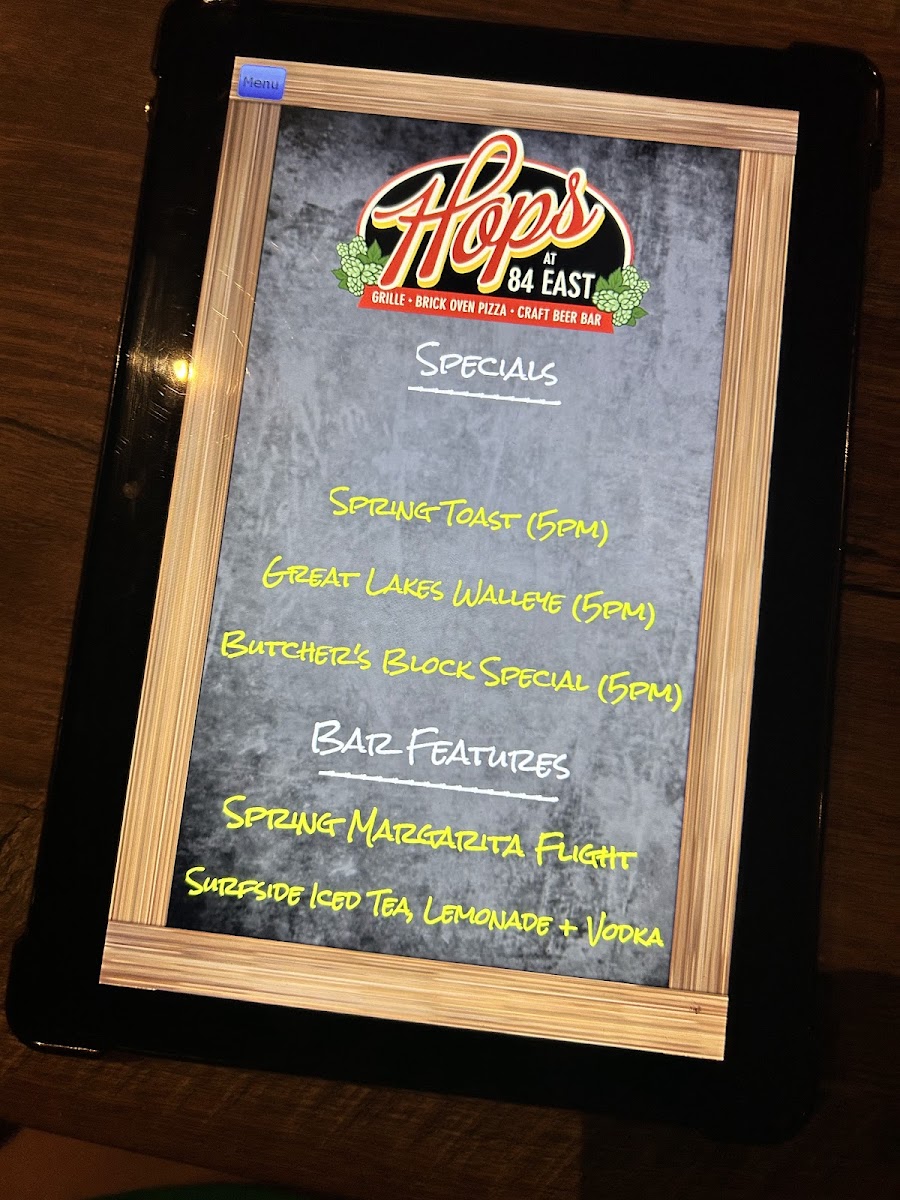 Menu
Hops
AT
84 EAST
GRILLE • BRICK OVEN PIZZA • CRAFT BEER BAR
SPECIALS
SPRING TOAST (5PM)
GREAT LAKES WALLEYE (5PM)
BUTCHER'S BLOCK SPECIAL (5PM)
BAR FEATURES
SPRING MARGARITA FLIGHT
SURFSIDE ICED TEA, LEMONADE + VODKA